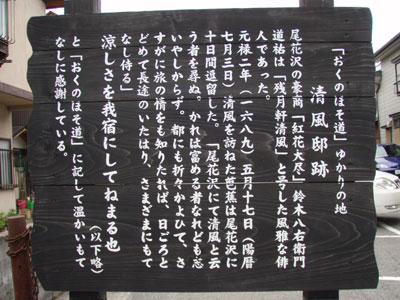 「おくのほそ道」ゆかりの地
清風邸跡
尾花沢の豪商「紅花大尽」鈴木八右衛門
道祐は「残月軒清風」と号した風雅な俳
人であった。
元禄二年(一六八九)五月十七日(陽暦
七月三日)清風を訪ねた芭蕉は尾花沢に
十日間逗留した。「尾花沢にて清風と云
う者を尋ぬ。かれは富める者なれども志
いやしからず。都にも折々かよひて、さ
すがに旅の情をも知りたれば、日ごろと
どめて長途のいたはり、さまざまにもて
なし侍る」
涼しさを我宿にしてねまる也
(以下略)
と「おくのほそ道」に記して温かいもて
なしに感謝している。